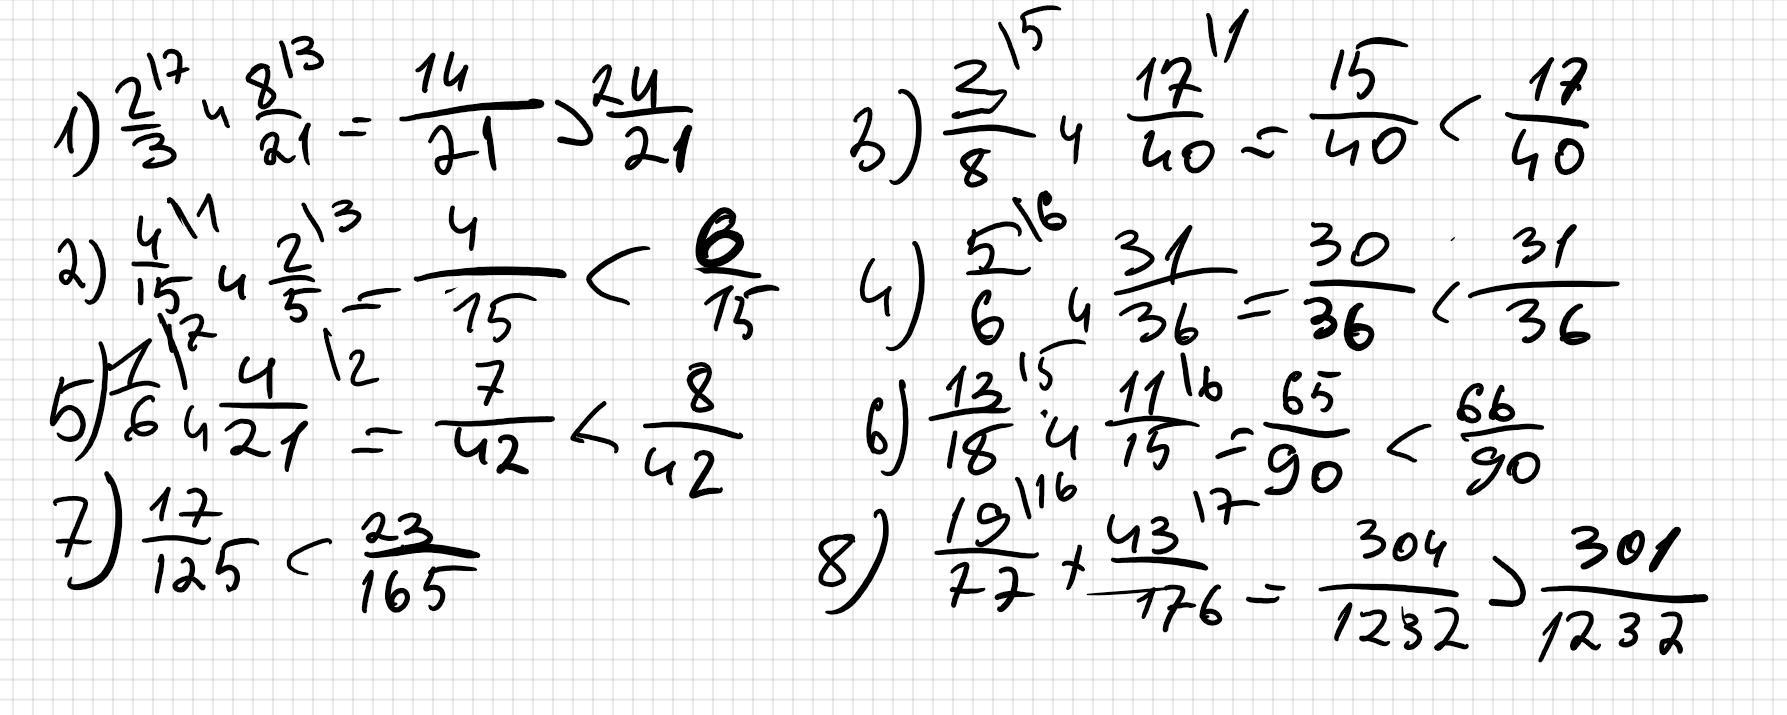 1) 2/3 \7 и 8/21 \3 = 14/21 > 24/21
2) 4/15 \1 и 2/5 \3 = 4/15 < 6/15
5) 1/6 \7 и 4/21 \2 = 7/42 < 8/42
7) 17/125 < 23/165
3) 3/8 \5 и 17/40 \1 = 15/40 < 17/40
4) 5/6 \6 и 31/36 = 30/36 < 31/36
6) 13/18 \5 и 11/15 \6 = 65/90 < 66/90
8) 19/77 \16 + 43/176 \7 = 304/1232 > 301/1232